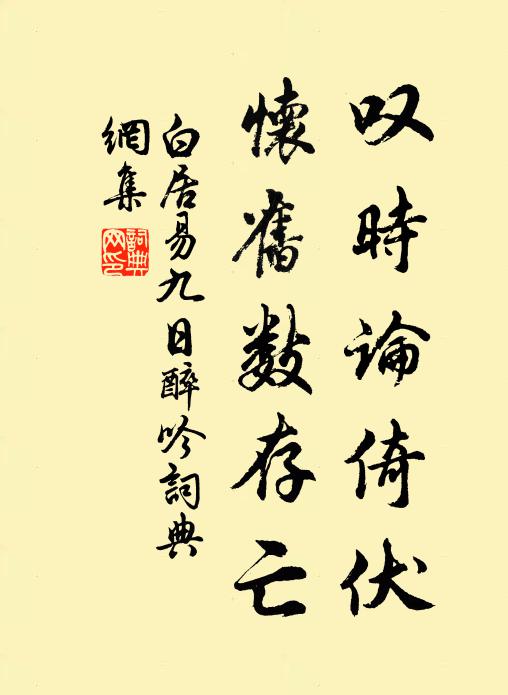 叹時論倚伏
懷舊数存亡
白居易九日醉吟詞典
網集
詞典
网印